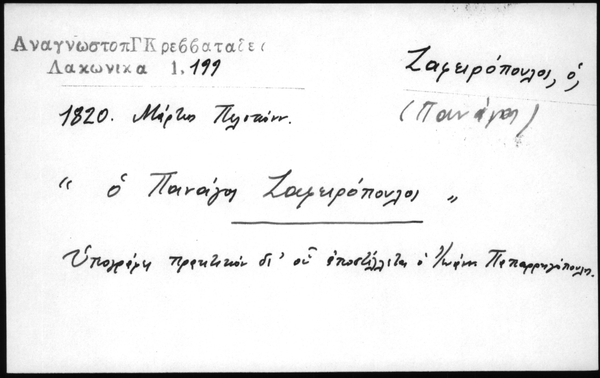 ΑναγνωστοπΓΚρεββαταδες
Λακωνικα 1, 199
Ζαφειρόπουλος, ὁ,
(Πανάγος)
1820. Μάρτιος
“ ὁ Πανάγος Ζαφειρόπουλος „
Ὑπογράφει πρακτικὸν δι' οὗ ἀποστέλλεται ὁ Ἰωάνν. Παπαρρηγόπουλος.